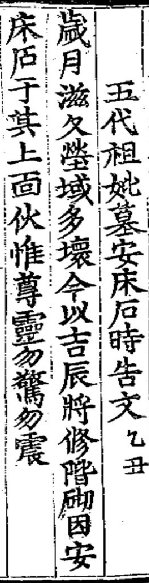 五代祖妣墓安床石時告文 乙丑
歲月滋久塋域多壞今以吉辰將修階砌因安
床石于其上面伏惟尊靈勿驚勿震